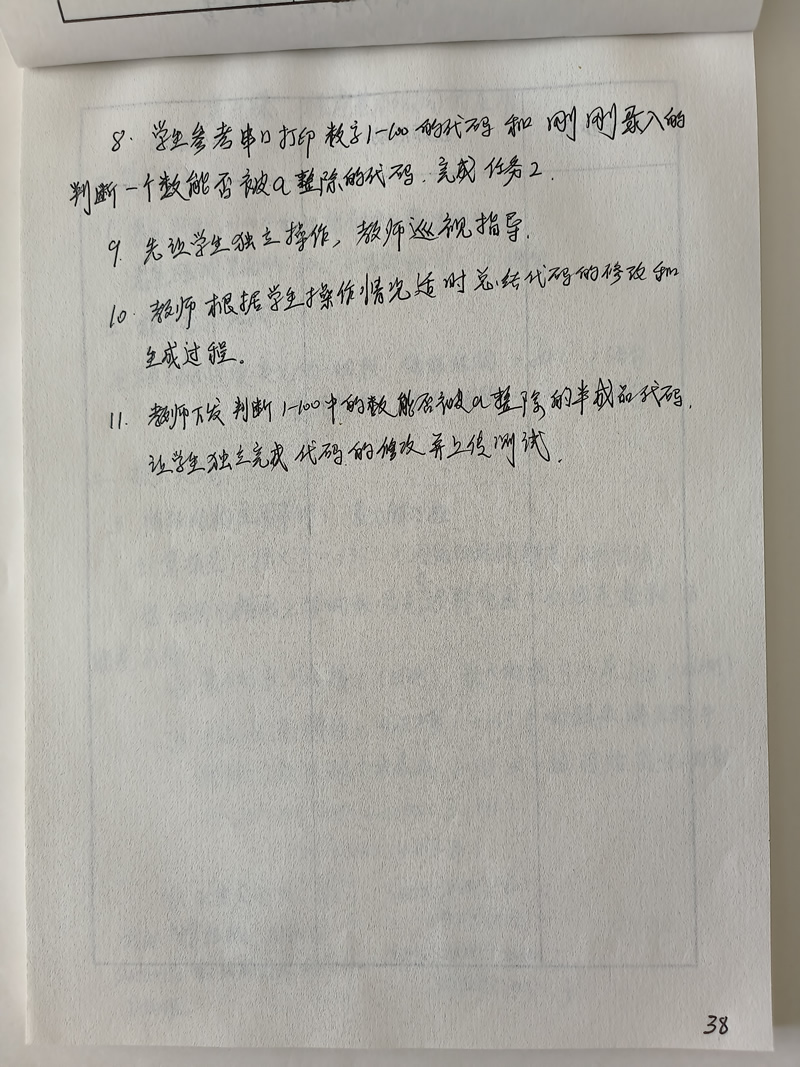 8. 学生参考串口打印数字1-100的代码和刚刚录入的
判断一个数能否被a整除的代码.完成任务2.
9. 先让学生独立操作,教师巡视指导.
10. 教师根据学生操作情况适时总结代码的修改和
生成过程。
11. 教师下发判断1-100中的数能否被a整除的半成品代码.
让学生独立完成代码的修改并上传测试.
38